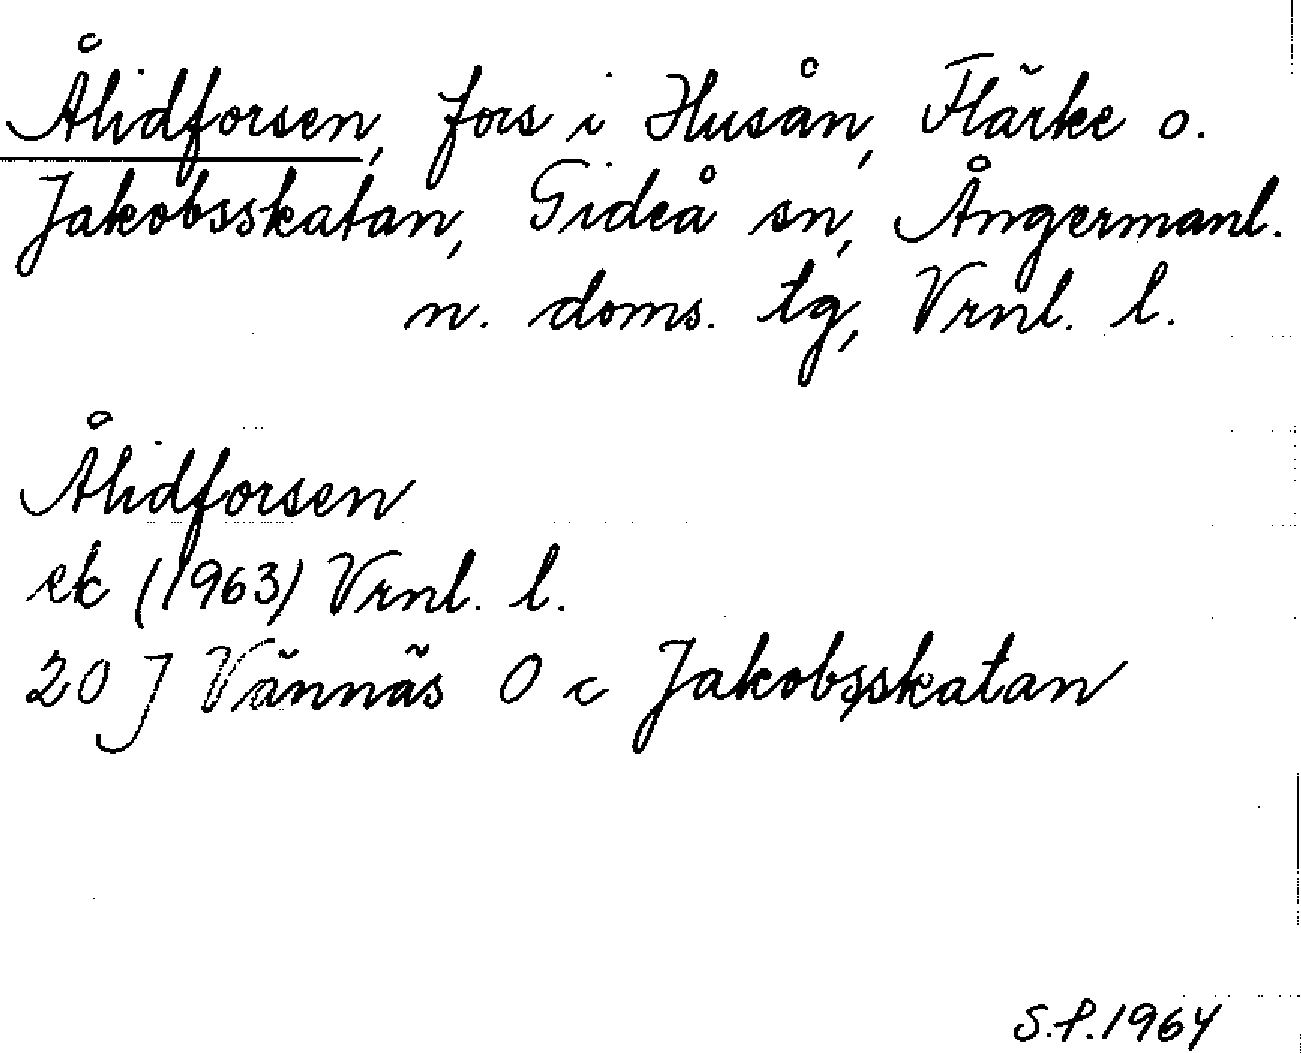 Ålidforsen, fors i Husån, Flärke o.
Jakobsskatan, Gideå sn, Ångermanl.
n. doms. tg, Vrnl. l.
Ålidforsen
ek (1963) Vrnl. l.
20 J Vännäs O c Jakobsskatan
S.P.1964